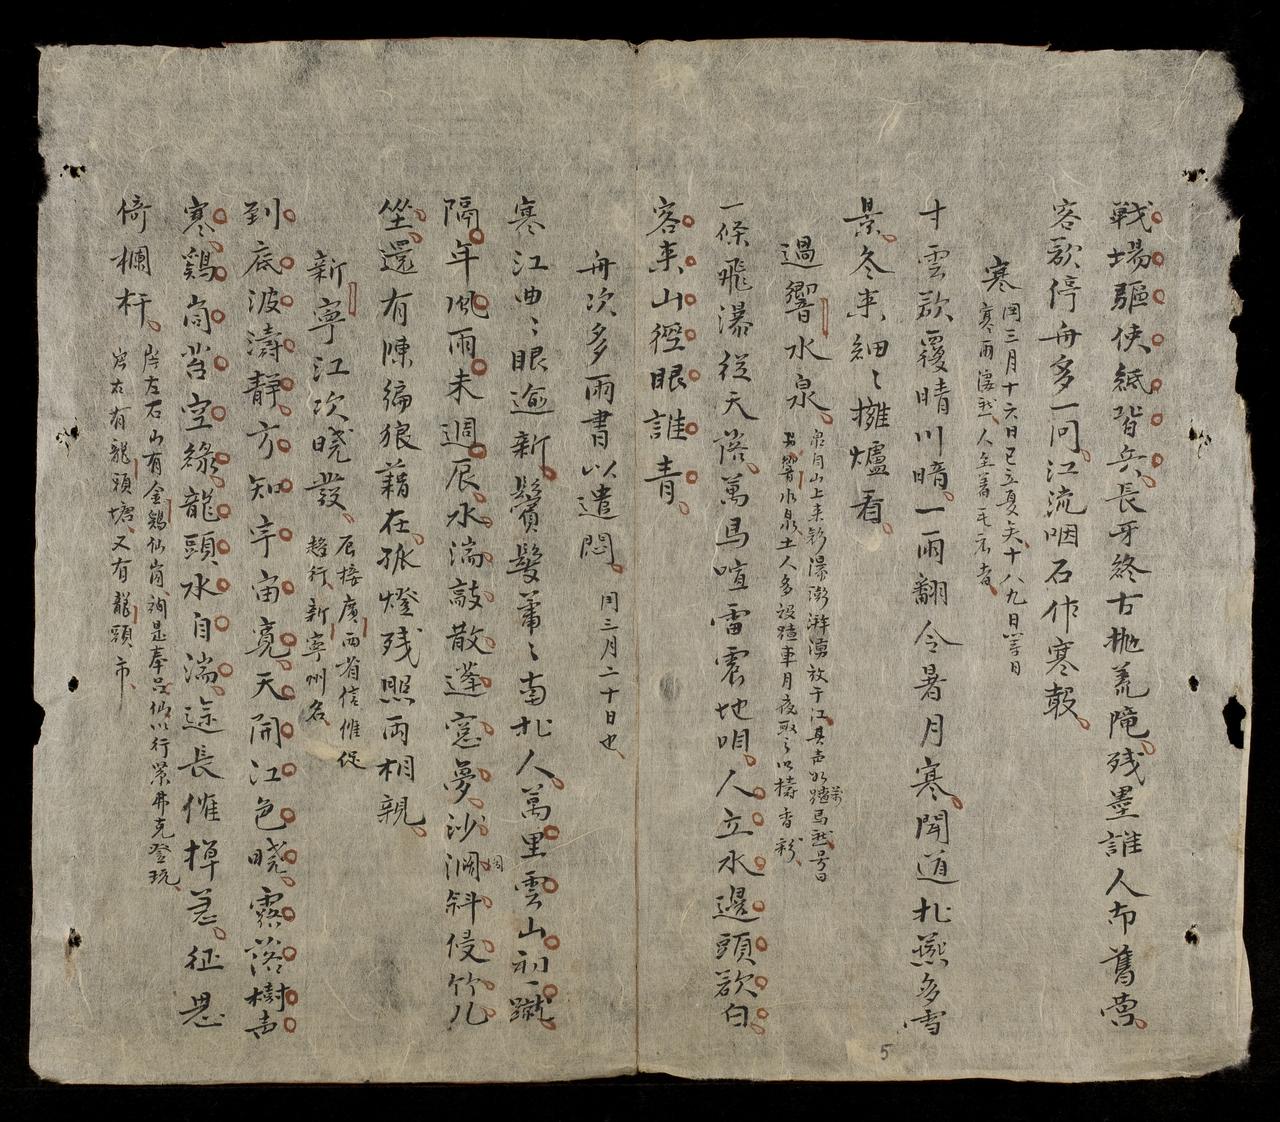 戰場驅使紙背兵長牙終古抛荒隴残墨誰人弔舊营
客歌停舟多一问江流咽石作寒聲
寒
闰三月十六日已立夏矣十八九日
寒雨淒然人全着毛衣者
寸雲欲覆晴川暗一雨翻令暑月寒聞道北燕多雪
景冬来細〻擁爐看
過響水泉
泉自山上来彩瀑澎湃湧放于江其声如萬蹄馬然号曰
为響水泉土人多設蹅車月夜取之以擣香彩
一條飛瀑從天落萬馬喧雷震地咱人立水邊頭欲白
客来山徑眼誰青
舟次多雨書以遣悶
闰三月二十日也
寒江曲〻眼逾新鬢髮萧〻南北人萬里雲山初一蹴
隔年風雨未週辰水湍敲散蓬窓夢沙涧斜侵竹几
坐還有陳编狼藉在孤燈残照两相親
新寧江次曉發
辰接廣西省信催促
趂行新寧州名
到底波濤靜方知宇宙寬天開江色曉露落樹声
寒鷄崗岧空緑龍頭水自湍途長催棹急征思
倚欄杆
岸左石山有金鷄仙崗詢是奉吕仙以行緊弗克登玩
岸右有龍頭塘又有龍頭市
5